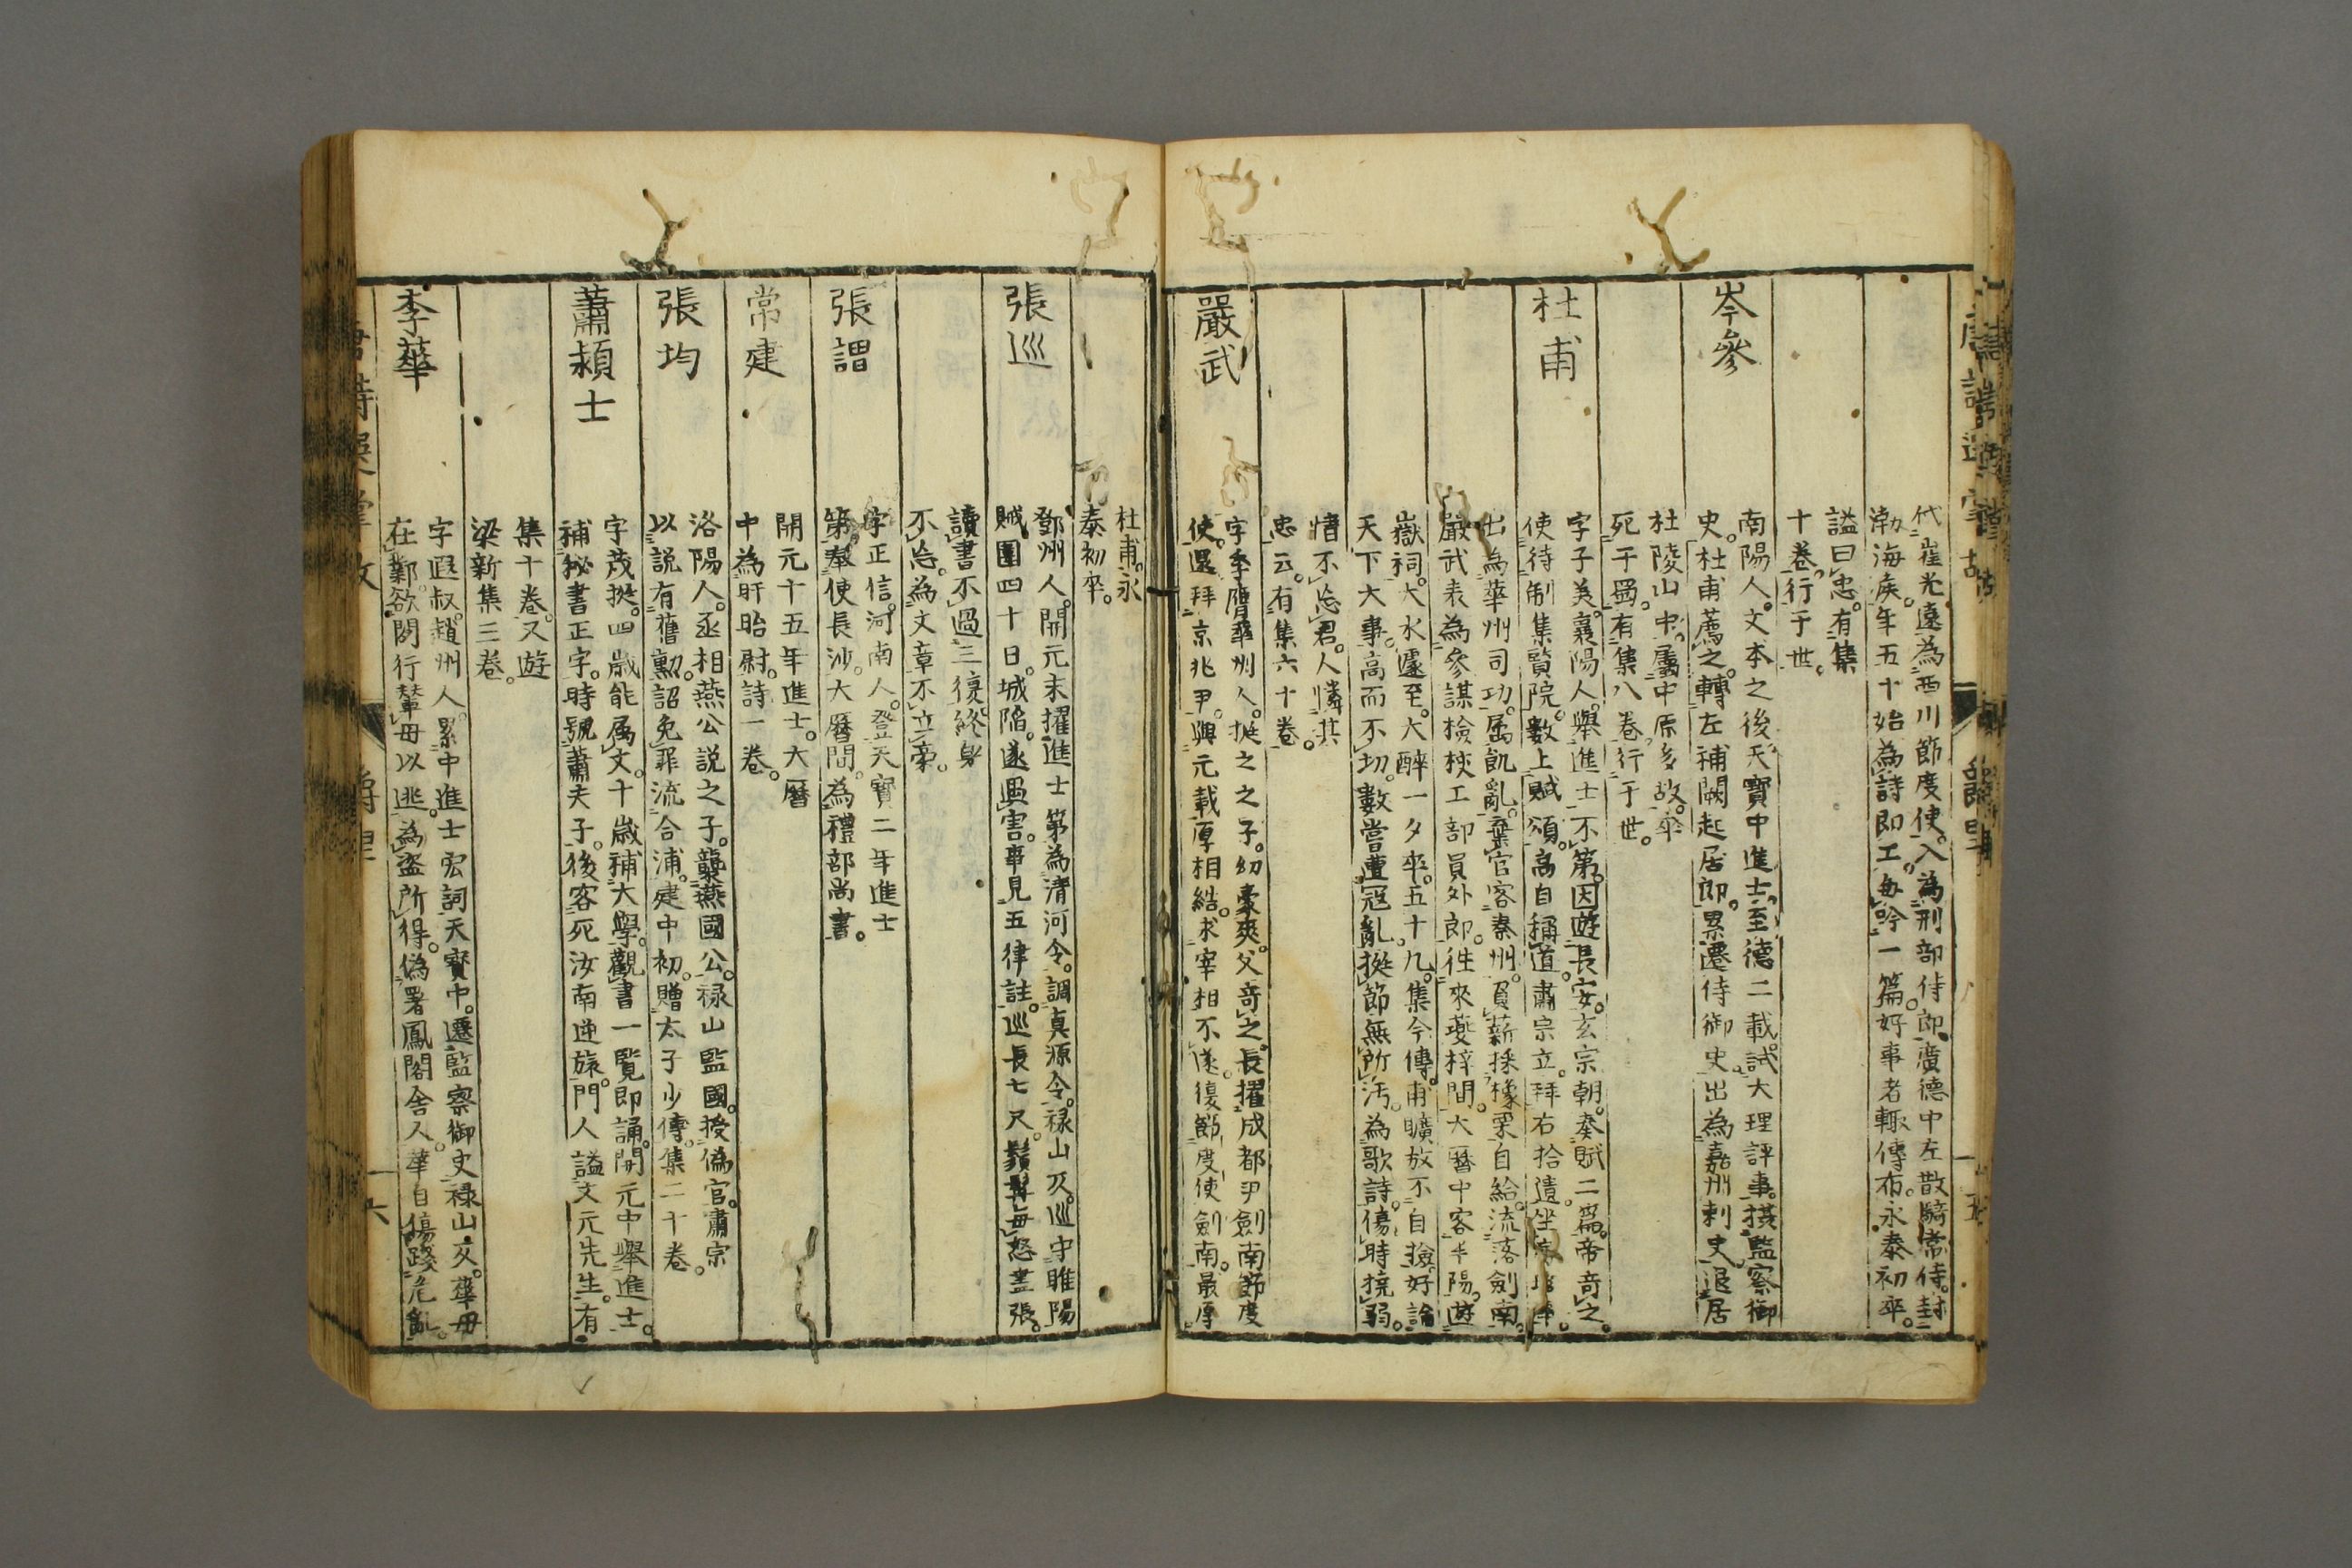 代崔光遠為西川節度使。入為刑部侍郎。廣德中左散騎常侍。封
渤海矦。年五十始為詩即工。每吟一篇。好事者輙傳布。永泰初卒。
謚曰忠。有集
十卷。行于世。
岑參
南陽人。文本之後。天寶中進士。至德二載試大理評事。攝監察御
史。杜甫薦之。轉左補闕起居郎。累遷侍御史。出為嘉州刺史。退居
杜陵山中。屬中原多故。卒
死于蜀。有集八卷。行于世。
杜甫
字子美。襄陽人。舉進士不第。因遊長安。玄宗朝。奏賦二篇。帝奇之。
使待制集賢院。數上賦頌。高自稱道。肅宗立。拜右拾遺。坐
出為華州司功。屬飢亂。棄官客秦州。負薪採橡栗自給。流落劍南。
嚴武表為參謀檢校工部員外郎。往來夔梓間。大曆中客耒陽。遊
嶽祠。大水遽至。大醉一夕卒。五十九。集今傳。甫曠放不自撿。好論
天下大事。高而不切。數嘗遭寇亂。挺節無所汚。為歌詩。傷時撓弱。
情不忘君。人憐其
忠云。有集六十卷。
嚴武
字季鷹。華州人。挺之之子。幼豪爽。父奇之。長擢成都尹劍南節度
使。還拜京兆尹。與元載厚相結。求宰相不遂。復節度使劍南。最厚
杜甫。永
泰初卒。
張巡
鄧州人。開元末擢進士第。為清河令。調真源令。祿山反。巡守睢陽
賊圍四十日。城陷。遂遇害。事見五律註。巡長七尺。鬚髯每怒盡張。
讀書不過三復。終身
不忘。為文章不立稾。
張謂
字正信。河南人。登天寶二年進士
第。奉使長沙。大曆間。為禮部尚書。
常建
開元十五年進士。大曆
中為盱眙尉。詩一卷。
張均
洛陽人。丞相燕公說之子。襲燕國公。祿山監國。授偽官。肅宗
以說有舊勳。詔免罪流合浦。建中初。贈太子少傅。集二十卷。
蕭穎士
字茂挺。四歲能属文。十歲補大學。觀書一覽即誦。開元中舉進士。
補秘書正字。時號蕭夫子。後客死汝南逆旅。門人謚文元先生。有
集十卷。又遊
梁新集三卷。
李華
字遐叔。趙州人。累中進士宏詞天寶中。遷監察御史。祿山反。華母
在鄴。欲間行輦母以逃。為盜所得。偽署鳳閣舍人。華自傷踐危亂。